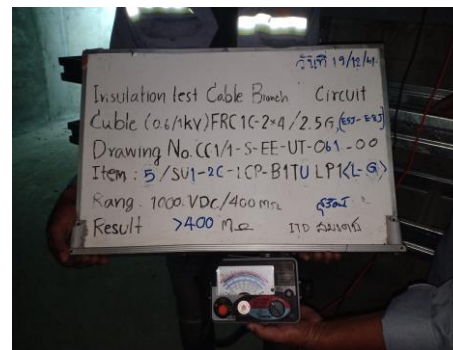 วันที่ 19/12/
Insulation test Cable Branch Circuit
Cable (0.6/1kV) FRC 1C-2×4/2.5G,
Drawing No. CC1/1-S-EE-UT-061-00
Item : 5/SU1-2C-LCP-B1TU LP1<L-G>
Rang. 1000.VDC./400 MΩ
Result >400 MΩ ITD